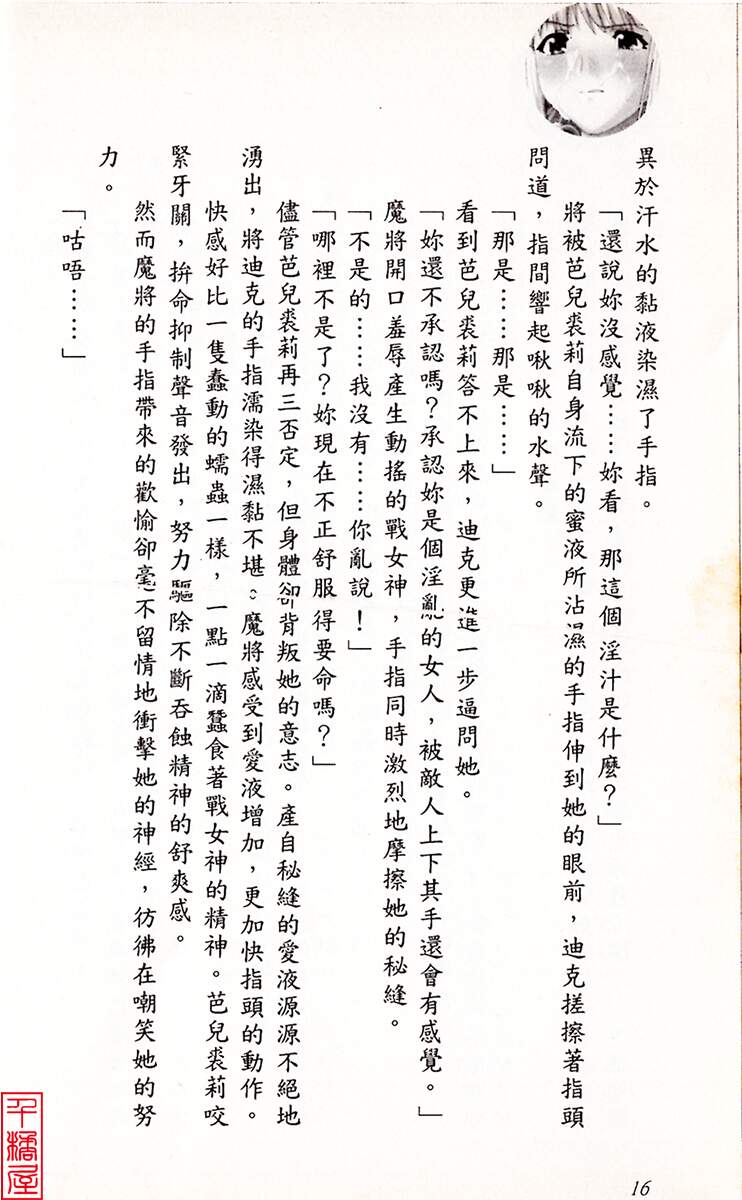 異於汗水的黏液染濕了手指。
「還說妳沒感覺……妳看，那這個淫汁是什麼？」
將被芭兒裘莉自身流下的蜜液所沾濕的手指伸到她的眼前，迪克搓擦著指頭
問道，指間響起啾啾的水聲。
「那是……那是……」
看到芭兒裘莉答不上來，迪克更進一步逼問她。
「妳還不承認嗎？承認妳是個淫亂的女人，被敵人上下其手還會有感覺。」
魔將開口羞辱產生動搖的戰女神，手指同時激烈地摩擦她的秘縫。
「不是的……我沒有……你亂說！」
「哪裡不是了？妳現在不正舒服得要命嗎？」
儘管芭兒裘莉再三否定，但身體卻背叛她的意志。產自秘縫的愛液源源不絕地
湧出，將迪克的手指濡染得濕黏不堪。魔將感受到愛液增加，更加快指頭的動作。
快感好比一隻蠢動的蠕蟲一樣，一點一滴蠶食著戰女神的精神。芭兒裘莉咬
緊牙關，拚命抑制聲音發出，努力驅除不斷吞蝕精神的舒爽感。
然而魔將的手指帶來的歡愉卻毫不留情地衝擊她的神經，彷彿在嘲笑她的努
力。
「咕唔……」
16
千橘屋